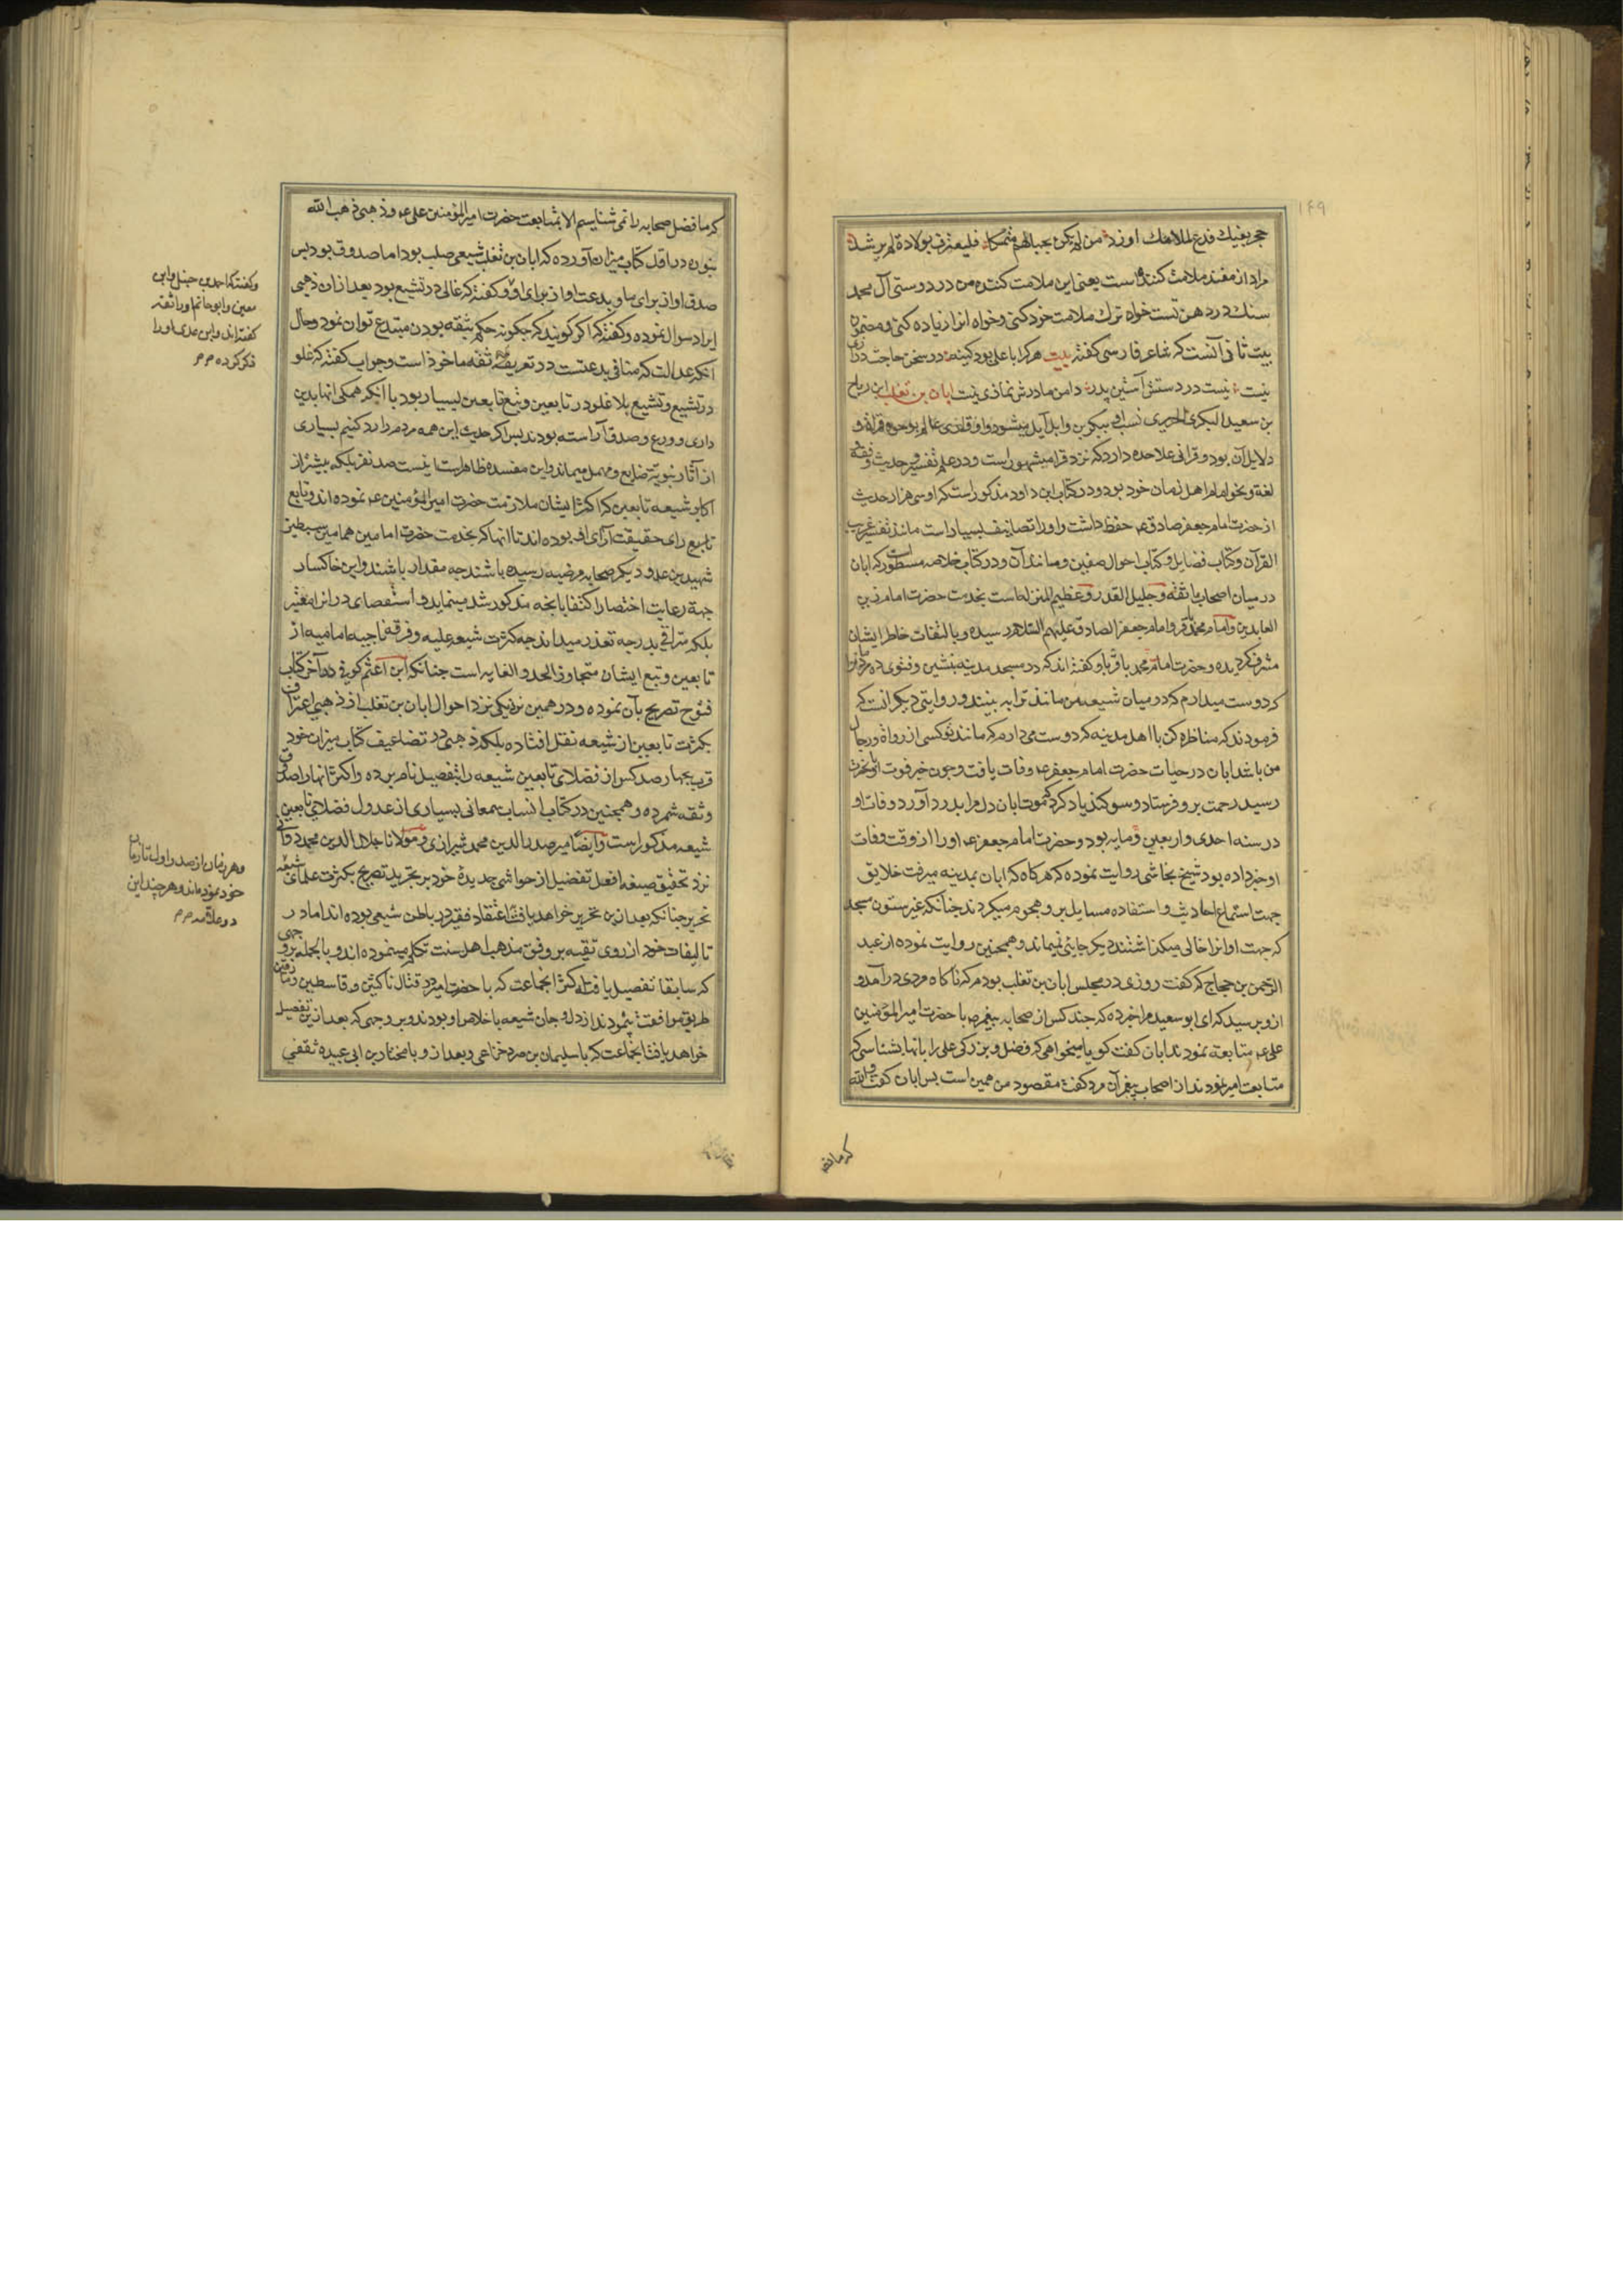 ۱۴۹
حجر بفیك فدع لملامك او زد من لم یکن بحبالهم متمسکا فلیعترف بولادة لم یرشد
مراد از مفند ملامت کننده است یعنی این ملامت کننده من در دوستی آل محمد
سنك در دهن تست خواه ترك ملامت خود کنی و خواه انرا زیاده کنی و مضمون
بیت ثانی آنست که شاعر فارسی کفته بیت هر کرا با علی بود کینه در سخن حاجت درازی
نیست نیست در دستش آستین پدر دامن مادرش نمازی نیست ابان بن تغلب ابن رباح
بن سعید البکری الجریری نسب او ببکر بن وایل میشود و او قاری عالم بوجوه قراة و
دلایل آن بود و قرائی علاحده دارد که نزد قرا مشهور است و در علم تفسیر و حدیث و فقه
لغة و نحو امام اهل زمان خود بود و در کتاب ابن داود مذکور است که او سی هزار حدیث
از حضرت امام جعفر صادق عم حفظ داشت و او را تصانیف بسیار است مانند تفسیر غریب
القرآن و کتاب فضایل و کتاب احوال صفین و مانند آن و در کتاب خلاصه مسطور است که ابان
در میان اصحاب ما ثقه و جلیل القدر و عظیم المنزله است بخدمت حضرت امام زین
العابدین و امام محمد باقر و امام جعفر الصادق علیهم السلام رسیده و بالتفات خاطر ایشان
مشرف کردیده و حضرت امام محمد باقر باو کفته اند که در مسجد مدینه بنشین و فتوی ده مردم را
که دوست میدارم که در میان شیعه من مانند ترا به بینند و روایتی دیکر انست که
فرمودند که مناظره کن با اهل مدینه که دوست می دارم که مانند تو کسی از رواة و رجال
من باشد ابان در حیات حضرت امام جعفر عم وفات یافت و چون خبر فوت او بانحضرت
رسید رحمت برو فرستاد و سوکند یاد کرد که موت ابان دل مرا بدرد آورد وفات او
در سنه احدی و اربعین و مایه بود و حضرت امام جعفر عم او را از وقت وفات
او خبر داده بود شیخ نجاشی روایت نموده که هر کاه که ابان بمدینه میرفت خلایق
جهت استماع احادیث و استفاده مسایل برو هجوم میکردند چنانکه غیر ستون مسجد
که جهت او انرا خالی میکذاشتند دیکر جایی نمیماند و همچنین روایت نموده از عبد
الرحمن بن حجاج که کفت روزی در مجلس ابان بن تغلب بودم که ناکاه مردی درآمد و
ازو پرسید که ای ابو سعید مرا خبر ده که چند کس از صحابه پیغمبر ص با حضرت امیرالمؤمنین
علی عم متابعه نمودند ابان کفت کویا میخواهی که فضل و بزرکی علی را بانها بشناسی که
متابعت امیر نمودند از اصحاب پیغمبر آن مرد کفت مقصود من همین است پس ابان کفت والله
که ما فضل
که ما فضل صحابه را نمی شناسیم الا بمتابعت حضرت امیرالمؤمنین علی عم و ذهبی ذهب الله
بنوره در اول کتاب میزان آورده که ابان بن تغلب شیعی صلب بود اما صدوق بود پس
صدق او از برای ما و بدعت او از برای او و کفته که غالی در تشیع بود بعد از ان ذهبی
ایراد سوال نموده و کفته که اکر کویند که چکونه حکم بثقه بودن مبتدع توان نمود و حال
آنکه عدالت که منافی بدعتست در تعریف ثقه ماخوذ است و جواب کفته که غلو
در تشیع و تشیع بلا غلو در تابعین و تبع تابعین بسیار بود با آنکه همکی انها بدین
داری و ورع و صدق آراسته بودند پس اکر حدیث این همه مردم را رد کنیم بسیاری
از آثار نبویه ضایع و مهمل میماند و این مفسده ظاهر است اینست صد نفر بلکه بیشتر از
اکابر شیعه تابعین که اکثر ایشان ملازمت حضرت امیرالمؤمنین عم نموده اند و تابع
تابع رای حقیقت آرای او بوده اند تا انها که بخدمت حضرت امامین همامین سبطین
شهیدین عم و دیکر صحابه مرضیه رسیده باشند چه مقدار باشند و این خاکسار
جهة رعایت اختصار اکتفا بانچه مذکور شد مینماید و استقصای در انرا متعسر
بلکه مترقی بدرجه تعذر میداند چه کثرت شیعه علیه و فرقه ناجیه امامیه از
تابعین و تبع ایشان متجاوز الحد و الغایه است چنانکه ابن اعثم کوفی در آخر کتاب
فتوح تصریح بآن نموده و در همین نزدیکی نزد احوال ابان بن تغلب از ذهبی اعتراف
بکثرت تابعین از شیعه نقل افتاده بلکه ذهبی در تضاعیف کتاب میزان خود
قریب بچهار صد کس از فضلای تابعین شیعه را بتفصیل نام برده و اکثر انها را صدوق
و ثقه شمرده و همچنین در کتاب انساب سمعانی بسیاری از عدول فضلای تابعین
شیعه مذکور است و ایضا میر صدر الدین محمد شیرازی و مولانا جلال الدین محمد دوانی
نزد تحقیق صیغه افعل تفضیل از حواشی جدیده خود بر تجرید تصریح بکثرت علمای شیعه
نحریر چنانکه بعد از ین تحریر خواهد یافت اعتقاد فقیر در باطن شیعی بوده اند اما در
تالیفات خود از روی تقیه بر وفق مذهب اهل سنت تکلم مینموده اند و بالجمله بر وجهی
که سابقا تفصیل یافته اکثر انجماعت که با حضرت امیر در قتال ناکثین و قاسطین و مارقین
طریق موافقت پیمودند از دل و جان شیعه با خلاص او بودند و بر وجهی که بعد از ین تفصیل
خواهد یافت انجماعت که با سلیمان بن صرد خزاعی و بعد ازو با مختار بن ابی عبیده ثقفی
و کفته که احمد بن حنبل و ابن
معین و ابو حاتم او را ثقه
کفته اند و ابن عدی او را
ذکر کرده
و هر زمان از صدر اول تا زمان
خود نموده اند و هر چند این
دو علامه